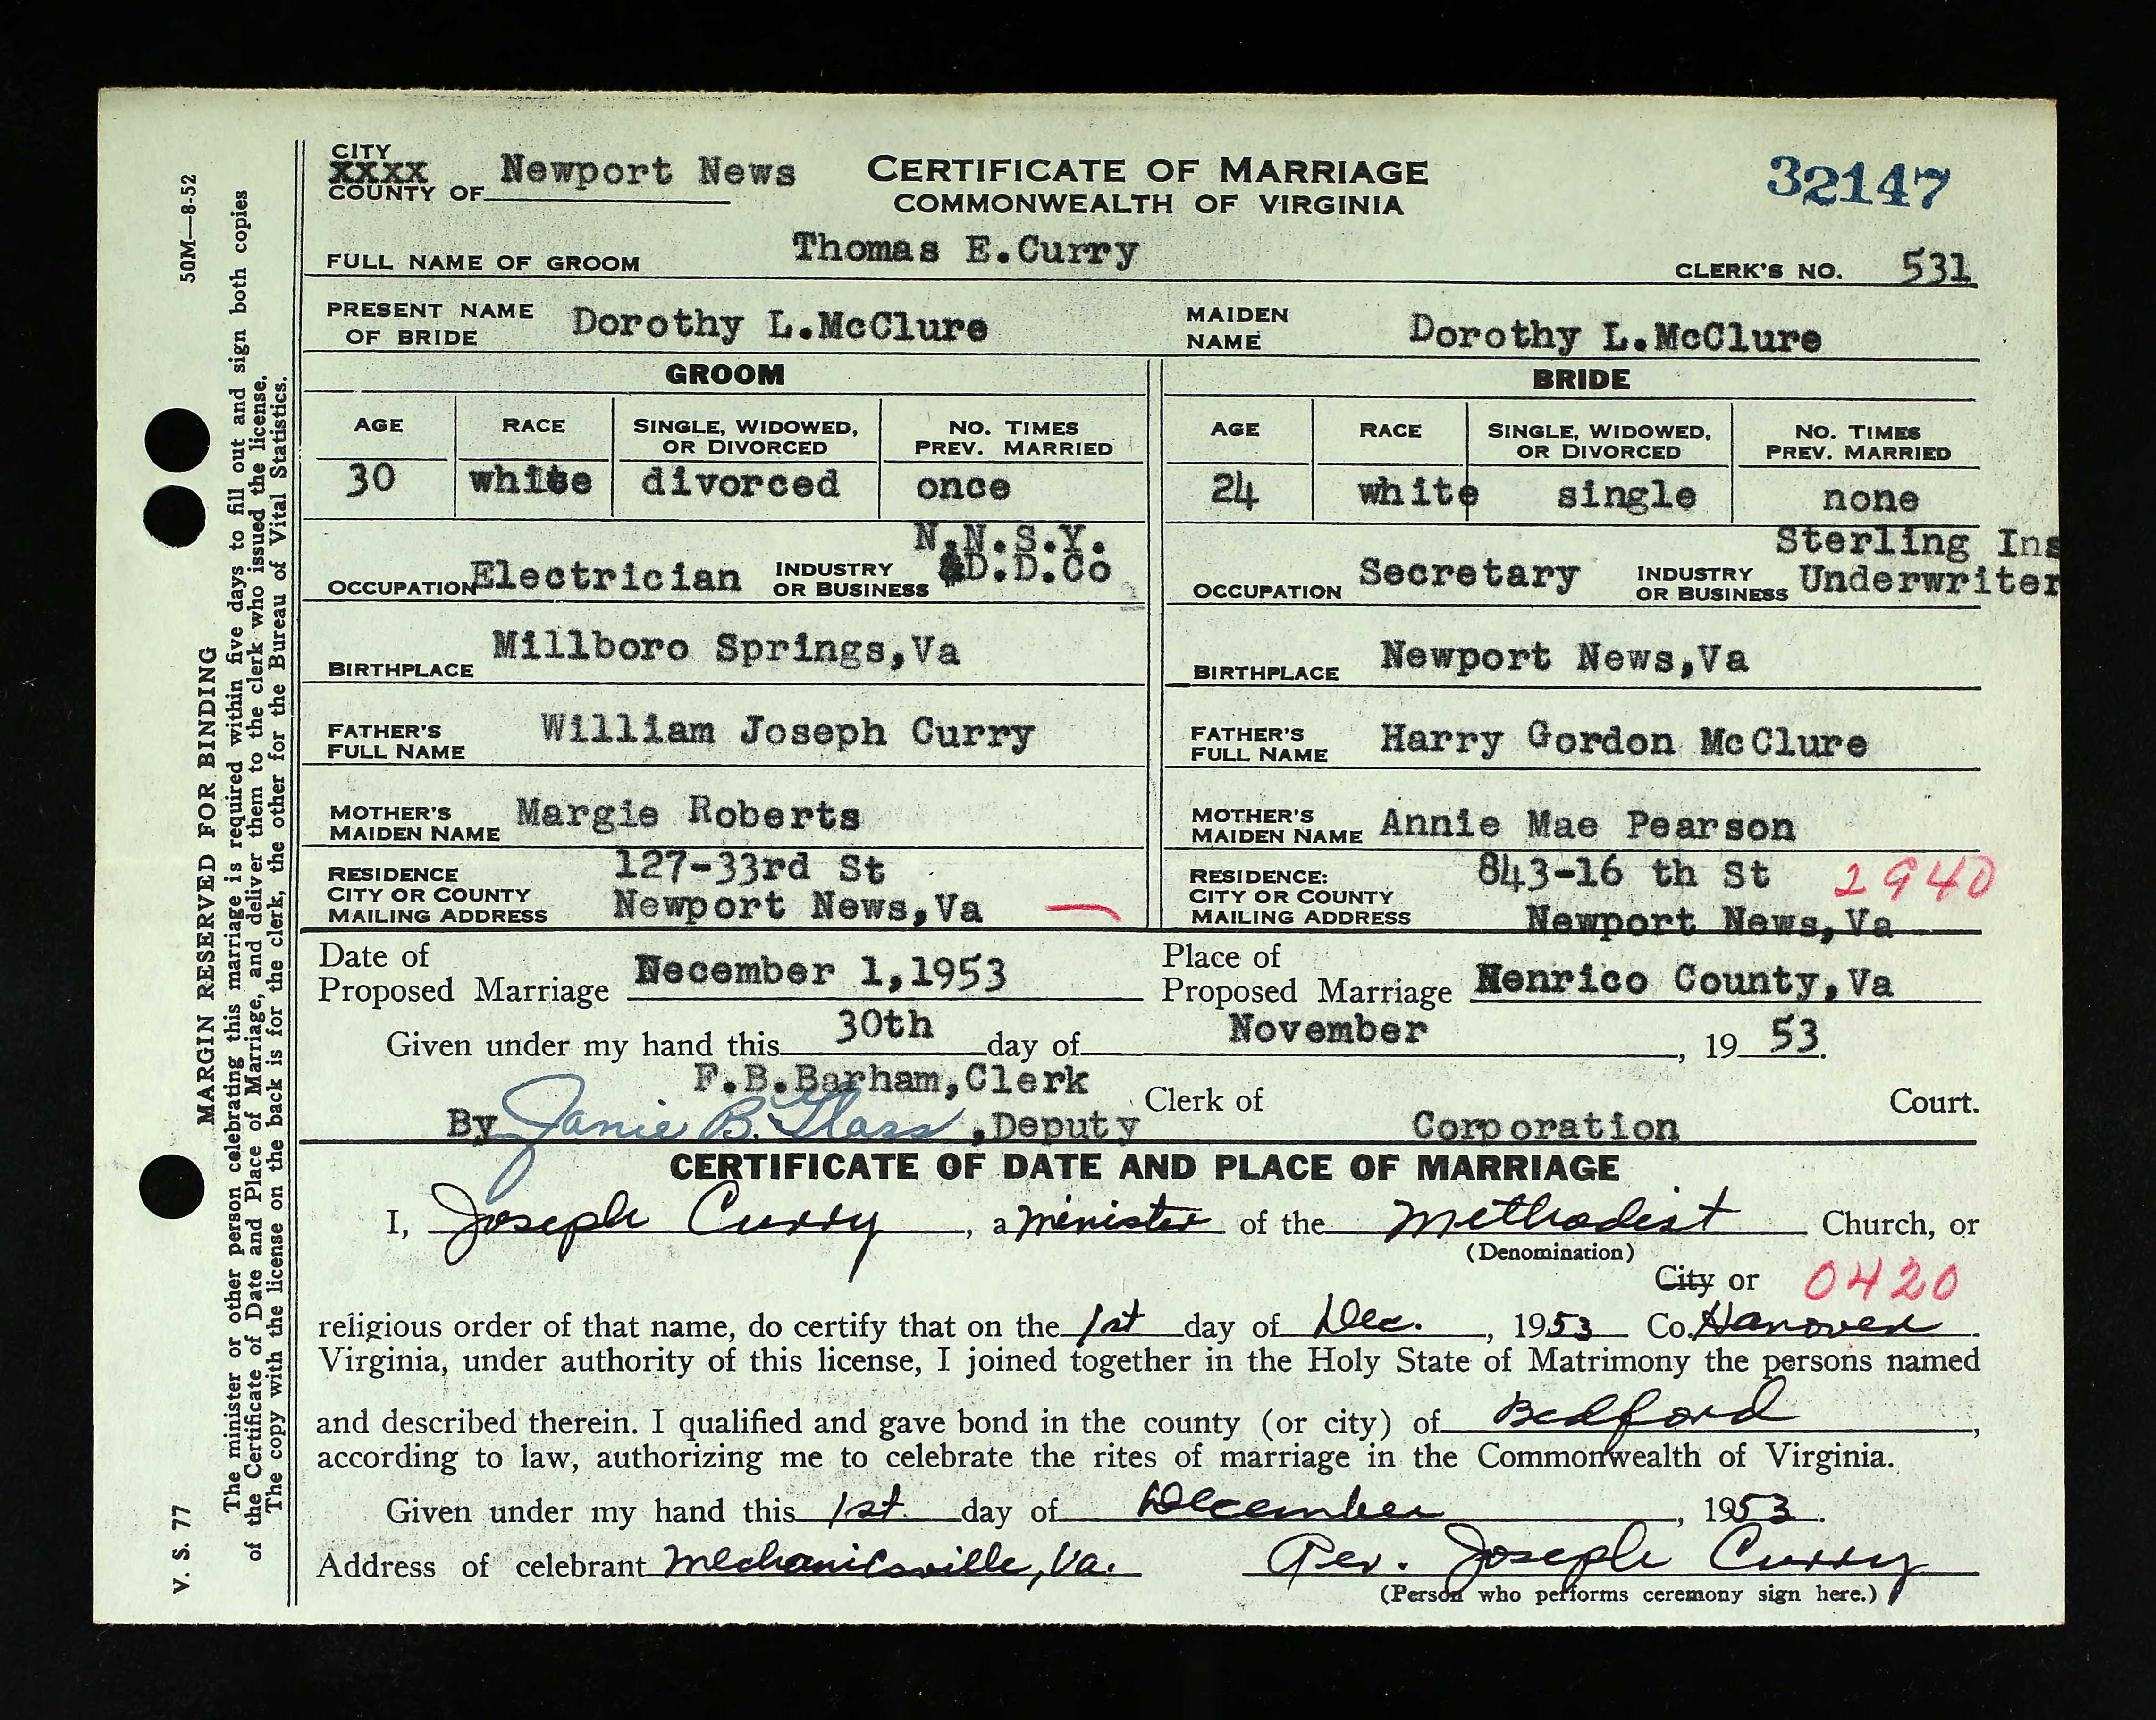 CITY
XXXX Newport News
COUNTY OF
CERTIFICATE OF MARRIAGE
COMMONWEALTH OF VIRGINIA
32147
FULL NAME OF GROOM Thomas E.Curry CLERK'S NO. 531
PRESENT NAME OF BRIDE Dorothy L.McClure MAIDEN NAME Dorothy L.McClure
GROOM BRIDE
AGE RACE SINGLE, WIDOWED, OR DIVORCED NO. TIMES PREV. MARRIED AGE RACE SINGLE, WIDOWED, OR DIVORCED NO. TIMES PREV. MARRIED
30 white divorced once 24 white single none
OCCUPATION Electrician INDUSTRY OR BUSINESS N.N.S.Y. &D.D.Co
OCCUPATION Secretary INDUSTRY OR BUSINESS Sterling Ins Underwriter
BIRTHPLACE Millboro Springs,Va BIRTHPLACE Newport News,Va
FATHER'S FULL NAME William Joseph Curry FATHER'S FULL NAME Harry Gordon McClure
MOTHER'S MAIDEN NAME Margie Roberts MOTHER'S MAIDEN NAME Annie Mae Pearson
RESIDENCE CITY OR COUNTY MAILING ADDRESS 127-33rd St Newport News,Va
RESIDENCE: CITY OR COUNTY MAILING ADDRESS 843-16 th St Newport News,Va 2940
Date of Proposed Marriage December 1,1953 Place of Proposed Marriage Henrico County,Va
Given under my hand this 30th day of November, 19 53.
F.B.Barham,Clerk
By Janie B. Glass ,Deputy Clerk of Corporation Court.
CERTIFICATE OF DATE AND PLACE OF MARRIAGE
I, Joseph Curry, a minister of the Methodist Church, or
(Denomination)
City or 0420
religious order of that name, do certify that on the 1st day of Dec., 1953 Co. Hanover.
Virginia, under authority of this license, I joined together in the Holy State of Matrimony the persons named
and described therein. I qualified and gave bond in the county (or city) of Bedford,
according to law, authorizing me to celebrate the rites of marriage in the Commonwealth of Virginia.
Given under my hand this 1st. day of December, 1953.
Address of celebrant Mechanicsville, Va. Rev. Joseph Curry
(Person who performs ceremony sign here.)
V. S. 77 MARGIN RESERVED FOR BINDING 50M—8-52
The minister or other person celebrating this marriage is required within five days to fill out and sign both copies
of the Certificate of Date and Place of Marriage, and deliver them to the clerk who issued the license.
The copy with the license on the back is for the clerk, the other for the Bureau of Vital Statistics.